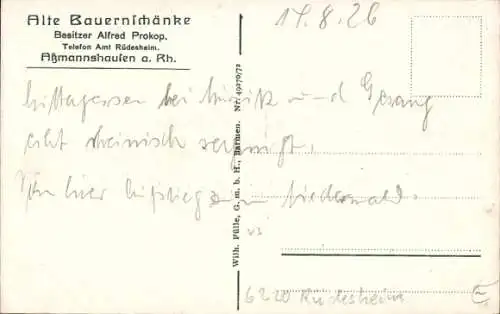 Alte Bauernschänke
Besitzer Alfred Prokop.
Telefon Amt Rüdesheim.
Aßmannshausen a. Rh.
17.8.26
Mittagessen bei Musik und Gesang
echt rheinisch vergnügt.
Von hier Aufstieg zum Niederwald.
Wilh. Fülle, G. m. b. H., Barmen. Nr. 49270/72
6220 Rüdesheim